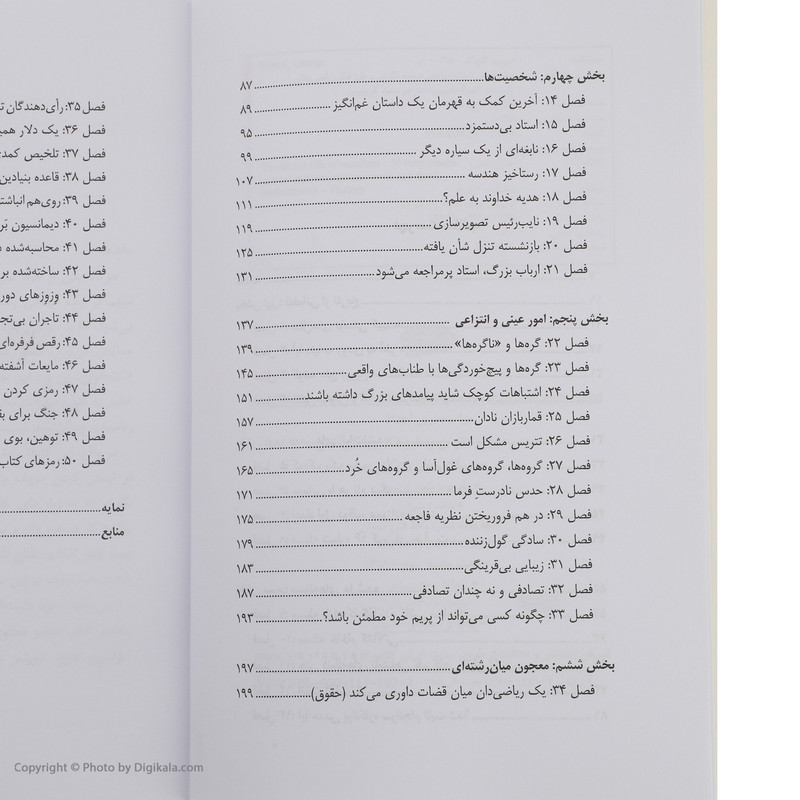 بخش چهارم: شخصیت‌ها ۸۷
فصل ۱۴: آخرین کمک به قهرمان یک داستان غم‌انگیز ۸۹
فصل ۱۵: استاد بی‌دستمزد ۹۵
فصل ۱۶: نابغه‌ای از یک سیاره دیگر ۹۹
فصل ۱۷: رستاخیز هندسه ۱۰۷
فصل ۱۸: هدیه خداوند به علم؟ ۱۱۱
فصل ۱۹: نایب‌رئیس تصویرسازی ۱۱۹
فصل ۲۰: بازنشسته تنزل شأن یافته ۱۲۵
فصل ۲۱: ارباب بزرگ، استاد پرمراجعه می‌شود ۱۳۱
بخش پنجم: امور عینی و انتزاعی ۱۳۷
فصل ۲۲: گره‌ها و «ناگره‌ها» ۱۳۹
فصل ۲۳: گره‌ها و پیچ‌خوردگی‌ها با طناب‌های واقعی ۱۴۵
فصل ۲۴: اشتباهات کوچک شاید پیامدهای بزرگ داشته باشند ۱۵۱
فصل ۲۵: قماربازان نادان ۱۵۷
فصل ۲۶: تتریس مشکل است ۱۶۱
فصل ۲۷: گروه‌ها، گروه‌های غول‌آسا و گروه‌های خُرد ۱۶۵
فصل ۲۸: حدس نادرستِ فرما ۱۷۱
فصل ۲۹: در هم فروریختن نظریه فاجعه ۱۷۵
فصل ۳۰: سادگی گول‌زننده ۱۷۹
فصل ۳۱: زیبایی بی‌قرینگی ۱۸۳
فصل ۳۲: تصادفی و نه چندان تصادفی ۱۸۷
فصل ۳۳: چگونه کسی می‌تواند از پریم خود مطمئن باشد؟ ۱۹۳
بخش ششم: معجون میان‌رشته‌ای ۱۹۷
فصل ۳۴: یک ریاضی‌دان میان قضات داوری می‌کند (حقوق) ۱۹۹
فصل ۳۵: رأی‌دهندگان
فصل ۳۶: یک دلار
فصل ۳۷: تلخیص
فصل ۳۸: قاعده بنیادین
فصل ۳۹: روی‌هم
فصل ۴۰: دیمانسیون
فصل ۴۱: محاسبه‌شده
فصل ۴۲: ساخته‌شده
فصل ۴۳: وِزوِزهای
فصل ۴۴: تاجران
فصل ۴۵: رقص فرفره‌ای
فصل ۴۶: مایعات آشفته
فصل ۴۷: رمزی کردن
فصل ۴۸: جنگ برای
فصل ۴۹: توهین، بوی
فصل ۵۰: رمزهای
نمایه
منابع
Copyright © Photo by Digikala.com